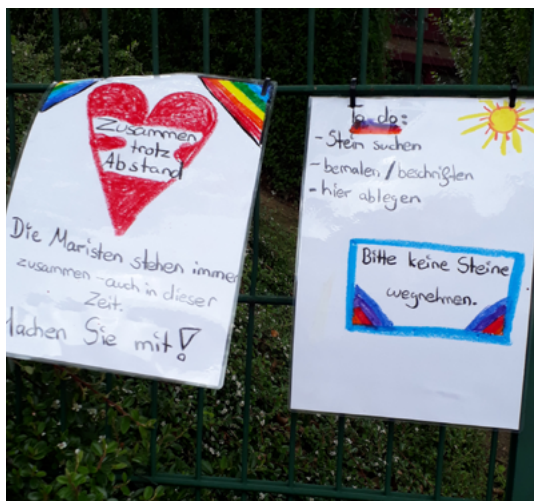 Zusammen
trotz
Abstand
Die Maristen stehen immer
zusammen - auch in dieser
Zeit.
Machen Sie mit!
To do:
- Stein suchen
- bemalen / beschriften
- hier ablegen
Bitte keine Steine
wegnehmen.